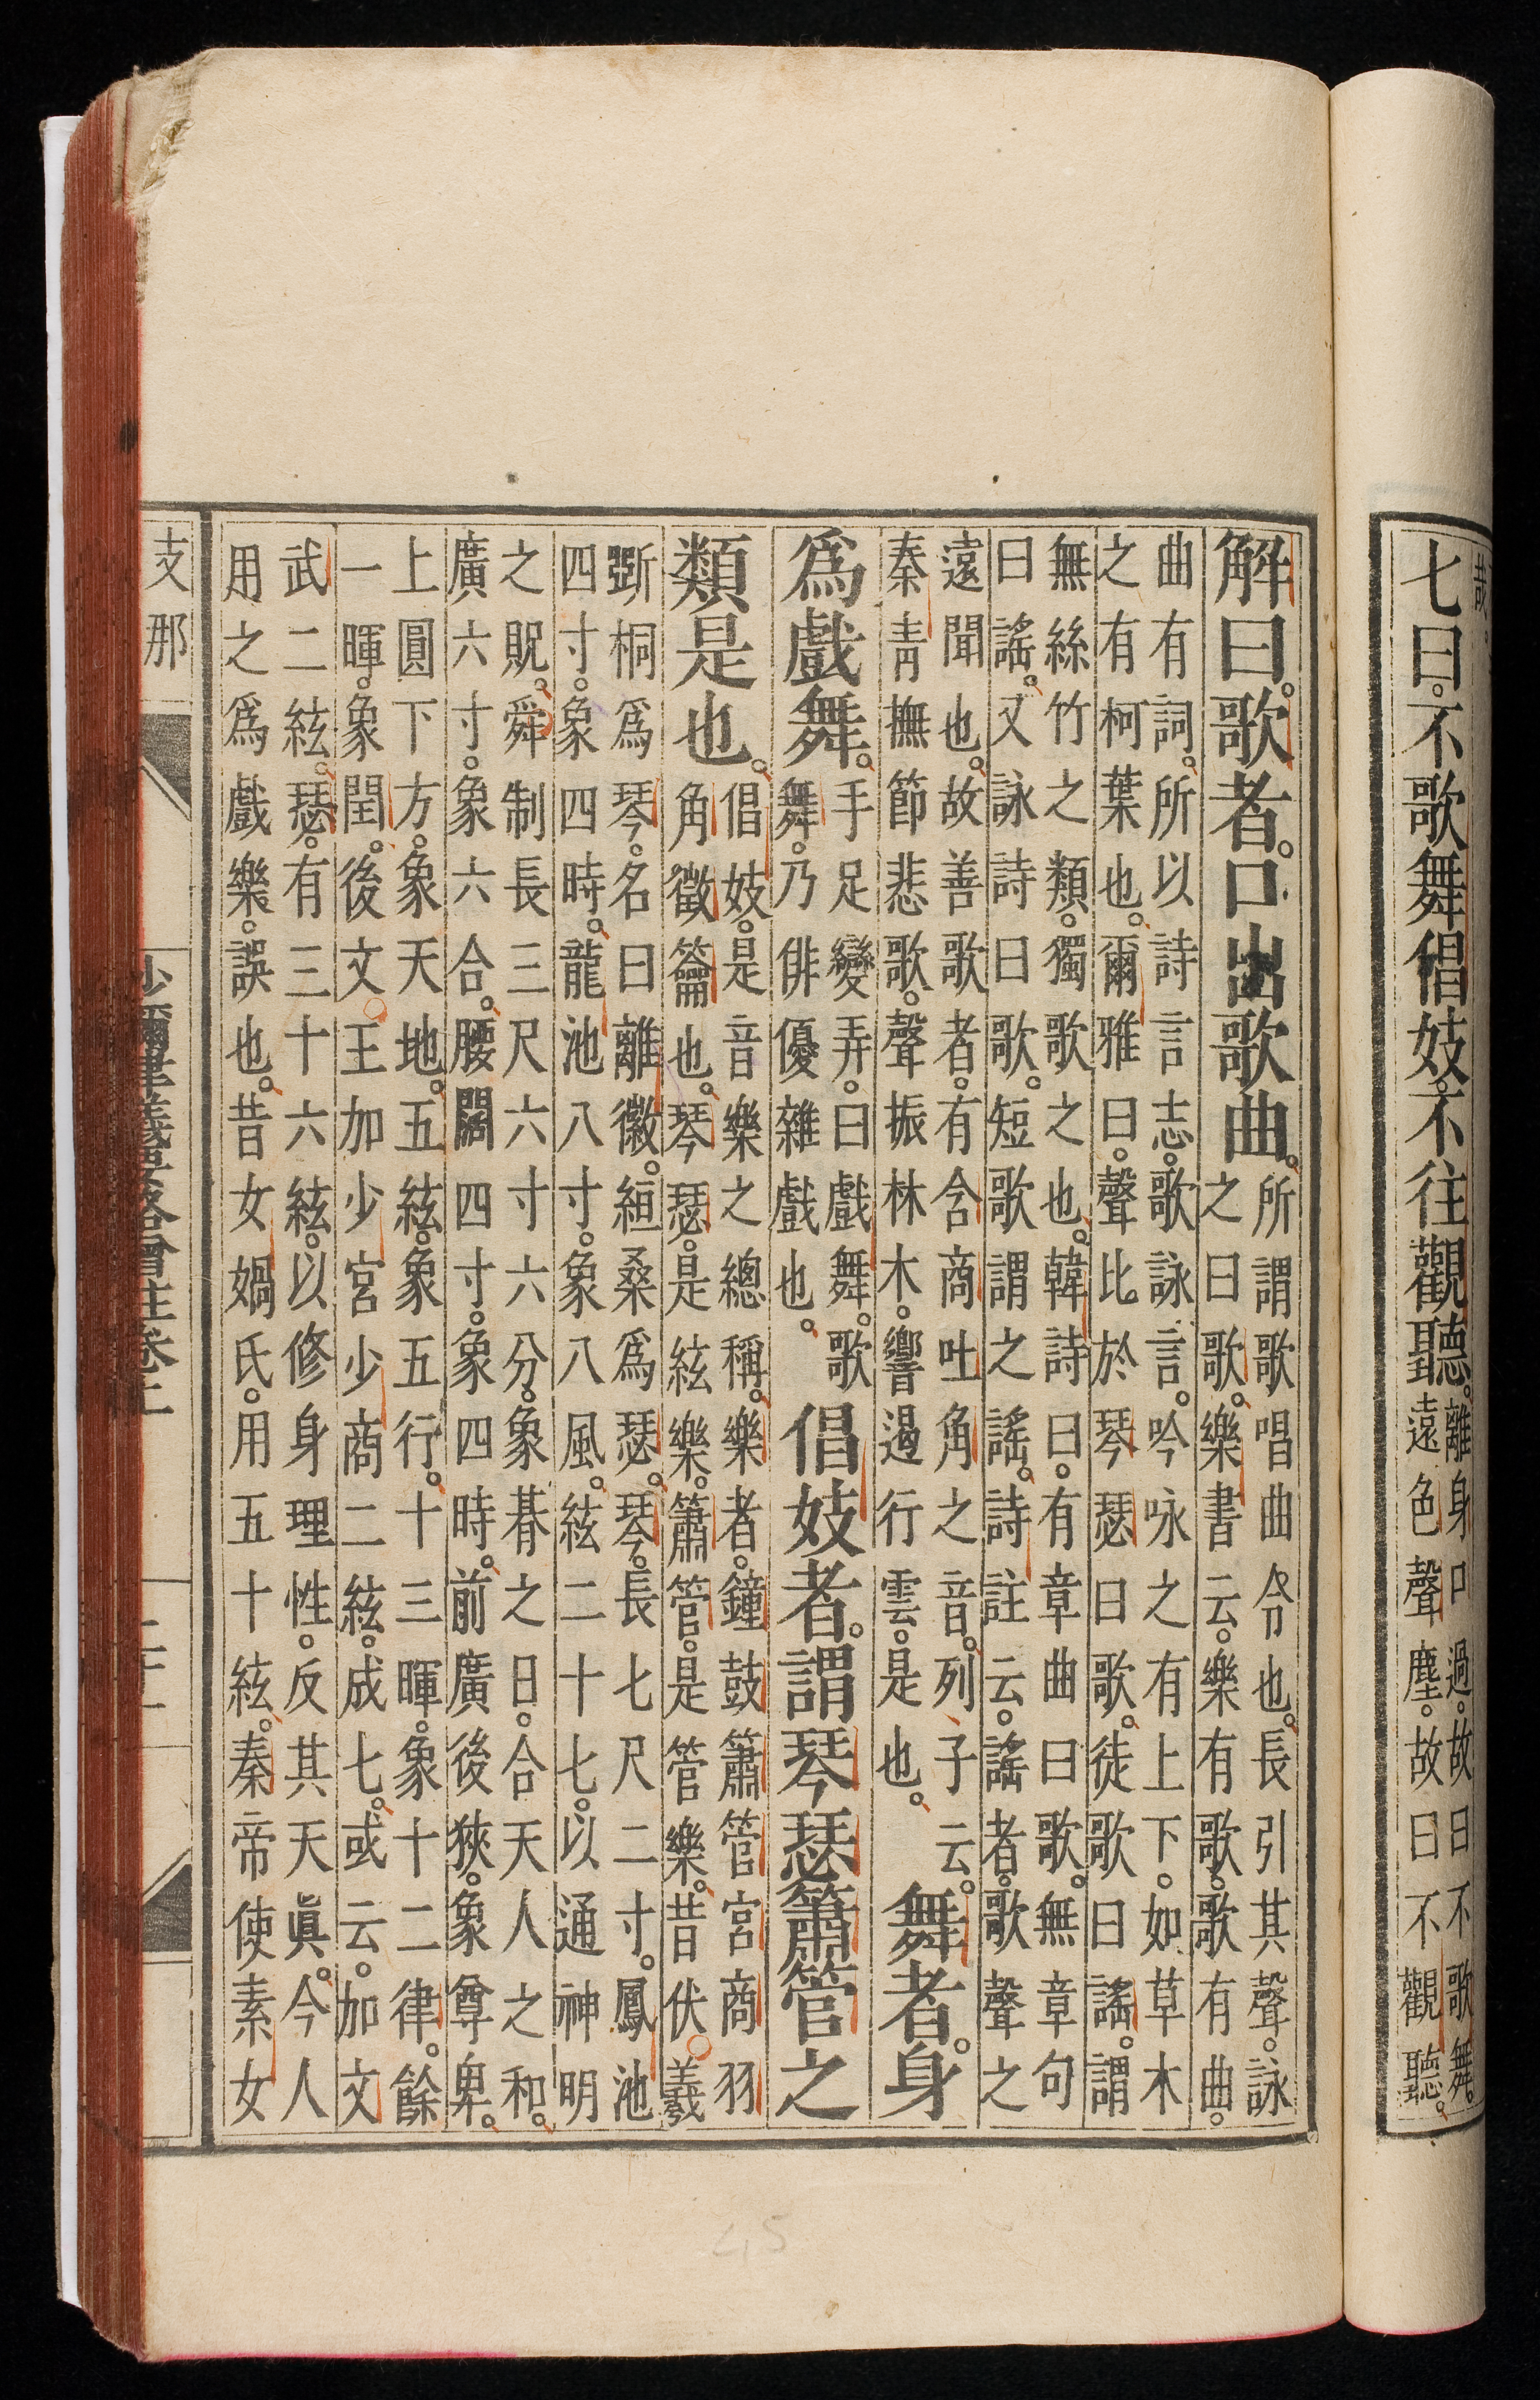 七曰。不歌舞倡妓。不往觀聽。
離身口過。故曰不歌舞。
遠色聲塵。故曰不觀聽。
解曰。歌者。口出歌曲。
所謂歌唱曲令也。長引其聲。詠
之曰歌。樂書云。樂有歌。歌有曲。
曲有詞。所以詩言志。歌詠言。吟咏之有上下。如草木
之有柯葉也。爾雅曰。聲比於琴瑟曰歌。徒歌曰謠。謂
無絲竹之類。獨歌之也。韓詩曰。有章曲曰歌。無章句
曰謠。又詠詩曰歌。短歌謂之謠。詩註云。謠者。歌聲之
遠聞也。故善歌者。有含商吐角之音。列子云。
秦青撫節悲歌。聲振林木。響遏行雲。是也。
舞者。身
爲戲舞。
手足變弄。曰戲舞。歌
舞。乃俳優雜戲也。
倡妓者。謂琴瑟簫管之
類是也。
倡妓。是音樂之總稱。樂者。鐘鼓簫管宮商羽
角徵籥也。琴瑟。是絃樂。簫管。是管樂。昔伏羲
斲桐爲琴。名曰離徽。絙桑爲瑟。琴。長七尺二寸。鳳池
四寸。象四時。龍池八寸。象八風。絃二十七。以通神明
之貺。舜制長三尺六寸六分。象朞之日。合天人之和。
廣六寸。象六合。腰闊四寸。象四時。前廣後狹。象尊卑。
上圓下方。象天地。五絃。象五行。十三暉。象十二律。餘
一暉。象閏。後文王加少宮少商二絃。成七。或云。加文
武二絃。瑟。有三十六絃。以修身理性。反其天眞。今人
用之爲戲樂。誤也。昔女媧氏。用五十絃。秦帝使素女
支那
沙彌律儀要略增註卷上